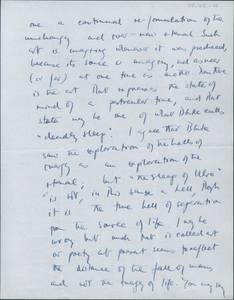 one a continual re-formulation of the
unchanging and ever-new eternal. Such
art is imaginary whenever it was produced,
because its source is imaginary, and as near
(or far) at one time as another. Derivative
is the art that expresses the state of
mind of a particular time, and that
state may be one of what Blake calls
"deadly sleep". I agree that Blake
saw the exploration of the halls of
 as an exploration of the
eternal, but "the sleep of Ulro"
is not, in this sense a hell though
it is the true hell of separation
from the source of life. I may be
wrong but much that is called art
or poetry at present seems to reflect
the distance of the fall of man,
and not the of life. You may say